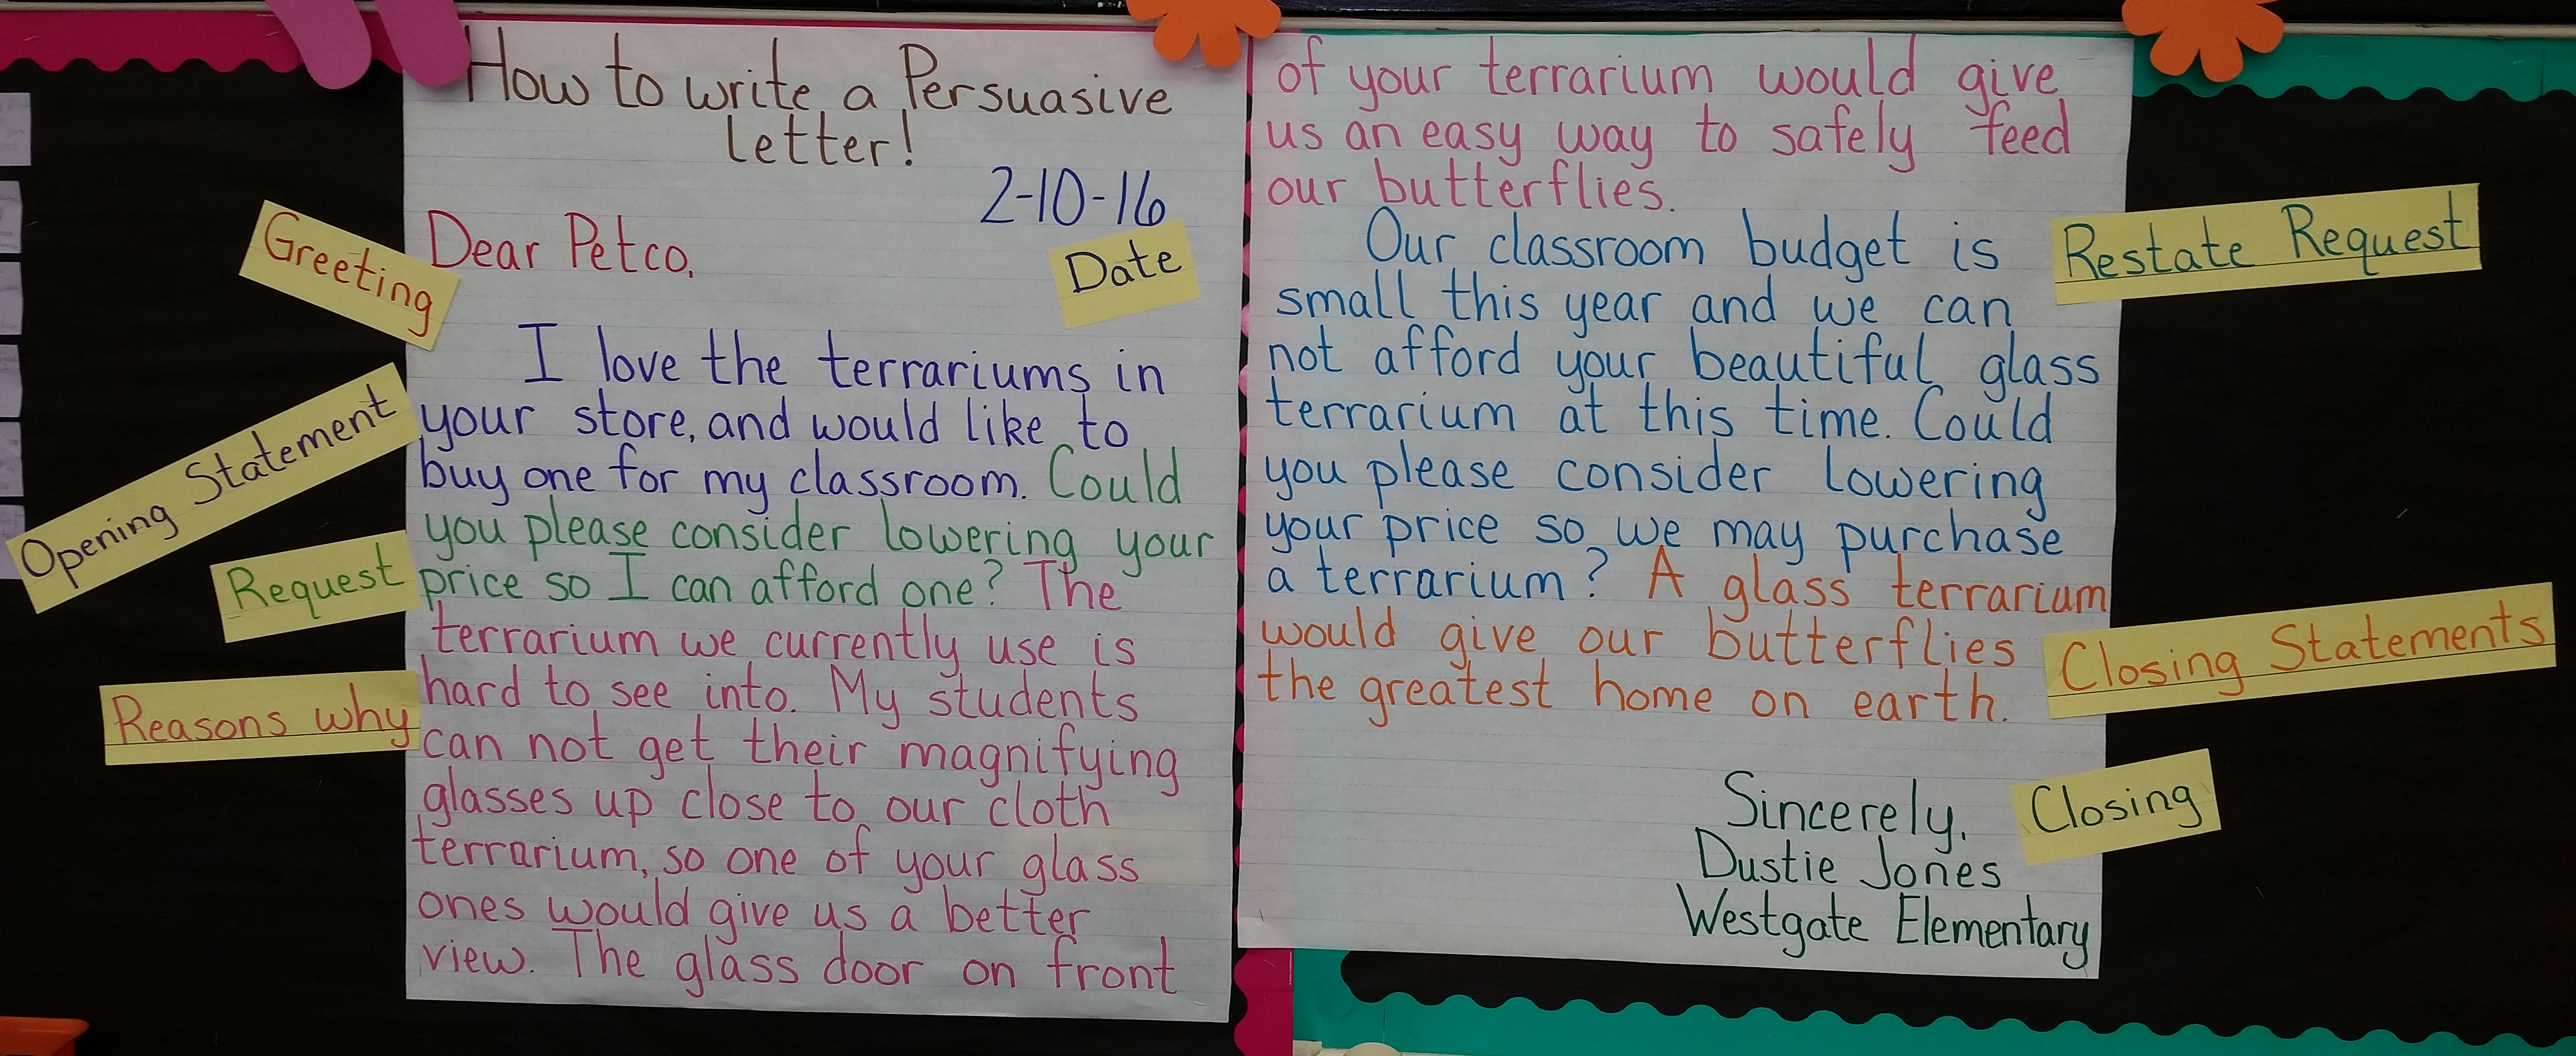 How to write a Persuasive
Letter!
2-10-16
Date
Greeting
Dear Petco,
Opening Statement
I love the terrariums in
your store, and would like to
buy one for my classroom. Could
you please consider lowering your
Request
price so I can afford one? The
terrarium we currently use is
Reasons why
hard to see into. My students
can not get their magnifying
glasses up close to our cloth
terrarium, so one of your glass
ones would give us a better
view. The glass door on front
of your terrarium would give
us an easy way to safely feed
our butterflies.
Restate Request
Our classroom budget is
small this year and we can
not afford your beautiful glass
terrarium at this time. Could
you please consider lowering
your price so we may purchase
a terrarium? A glass terrarium
would give our butterflies
the greatest home on earth.
Closing Statements
Sincerely,
Closing
Dustie Jones
Westgate Elementary